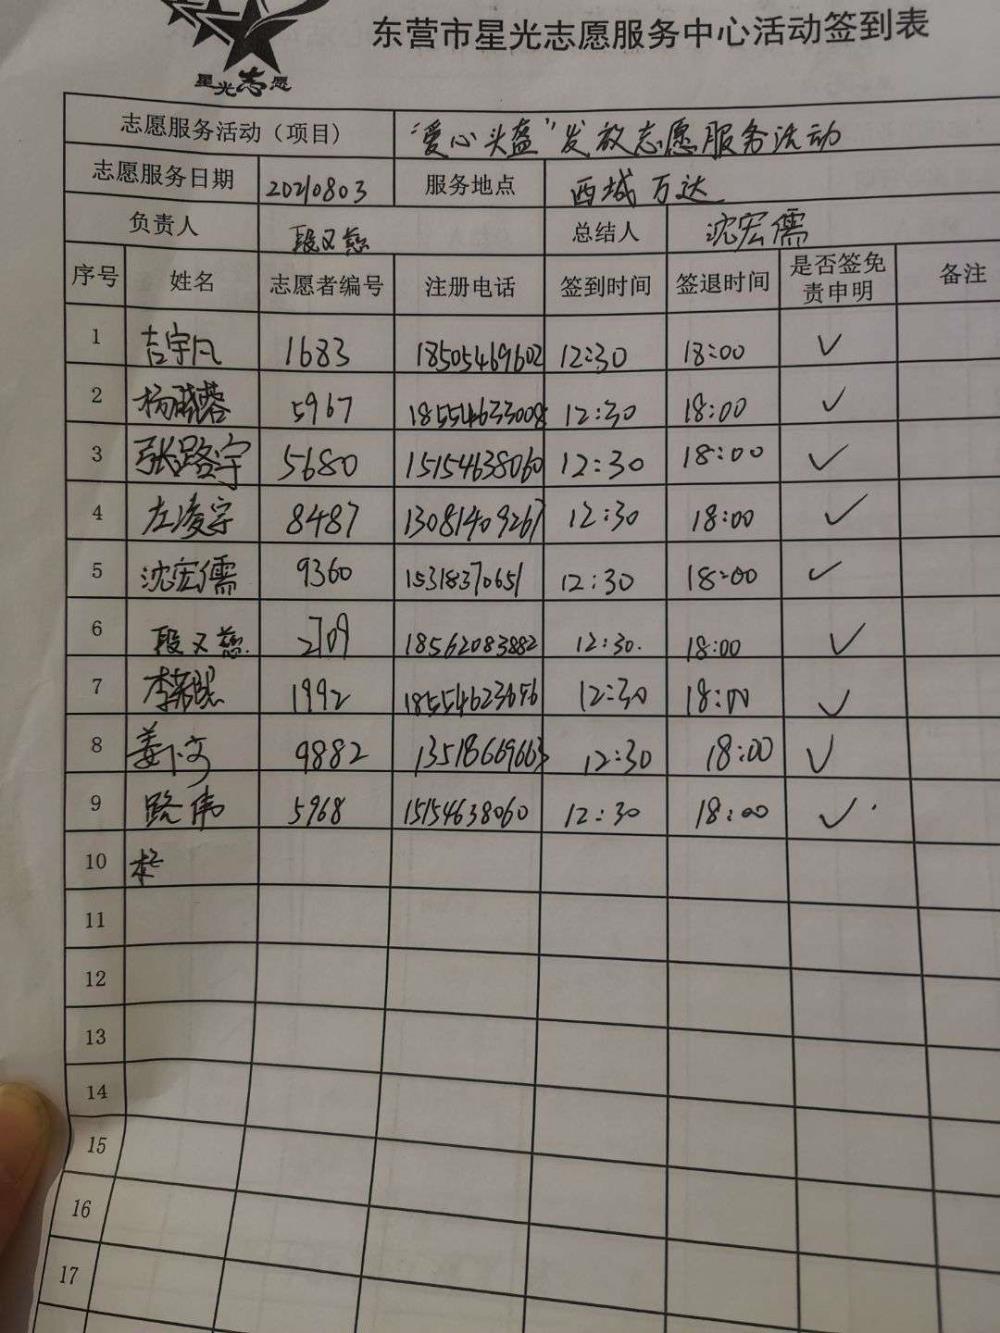 东营市星光志愿服务中心活动签到表
星光志愿
志愿服务活动（项目） “爱心头盔”发放志愿服务活动
志愿服务日期 20210803 服务地点 西城万达
负责人 段又慈 总结人 沈宏儒
序号 姓名 志愿者编号 注册电话 签到时间 签退时间 是否签免责申明 备注
1 吉宇凡 1683 18505469602 12:30 18:00 ✓
2 5967 18554633008 12:30 18:00 ✓
3 张路宇 5680 15154638060 12:30 18:00 ✓
4 左凌宇 8487 13081409267 12:30 18:00 ✓
5 沈宏儒 9360 15318370651 12:30 18:00 ✓
6 段又慈 2709 18562083882 12:30. 18:00 ✓
7 1992 18554623656 12:30 18:00 ✓
8 9882 13518669663 12:30 18:00 ✓
9 路伟 5968 15154638060 12:30 18:00 ✓
10
11
12
13
14
15
16
17